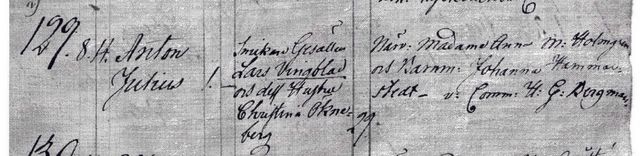 129. 8. H. Anton Julius 1.
Snickare Gesällen
Lars Vingblad
och dess Hustru
Christina Okne-
berg 29.
Närv: Madame Ann M: Holmgren
och Barnm: Johanna Hammar-
stedt - v: Comm: H. G: Bergman.
130